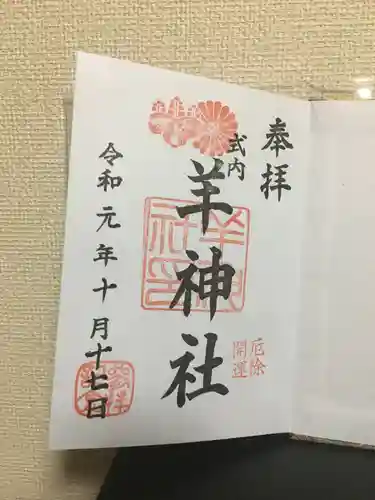 奉拝
式内
羊神社
厄除
開運
令和元年十月十七日